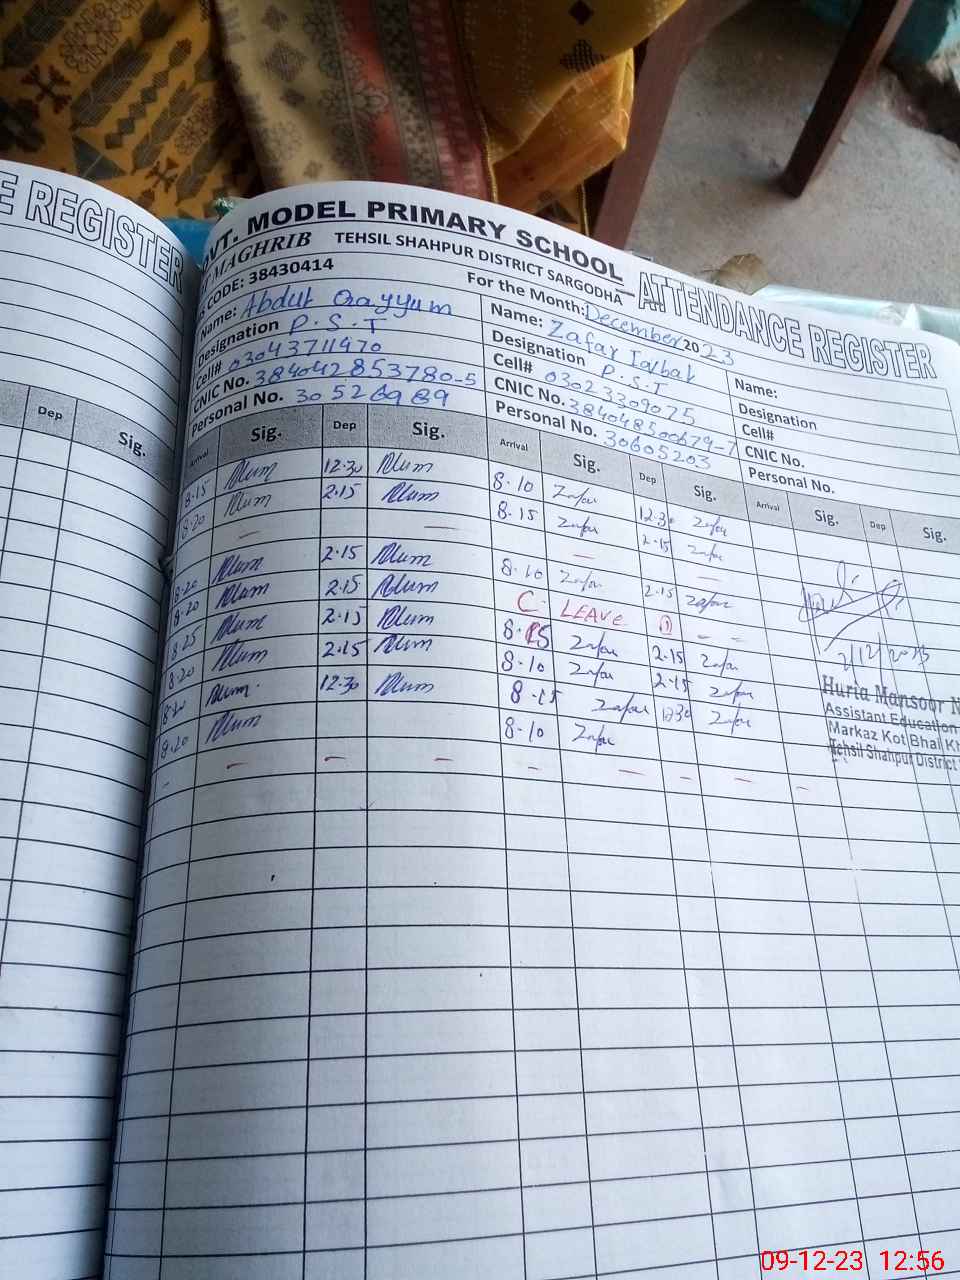 E REGISTER
VT. MODEL PRIMARY SCHOOL
ATTENDANCE REGISTER
MAGHRIB TEHSIL SHAHPUR DISTRICT SARGODHA
CODE: 38430414
For the Month: December 2023
Name: Abdul Qayyum
Designation P.S.T
Cell# 03043711970
CNIC No. 384042853780-5
Personal No. 30526989
Name: Zafar Iqbal
Designation P.S.T
Cell# 03023309075
CNIC No. 384048500679-7
Personal No. 30605203
Name:
Designation
Cell#
CNIC No.
Personal No.
Dep Sig.
Arrival Sig. Dep Sig. Arrival Sig. Dep Sig. Arrival Sig. Dep Sig.
8.15 12.30 8.10 Zafar 12.30 Zafar
8.20 2.15 8.15 Zafar 2.15 Zafar
— — — —
8.20 2.15 8.10 Zafar 2.15 Zafar
8.20 2.15 C. LEAVE ① – –
8.25 2.15 8.15 Zafar 2.15 Zafar
8.20 2.15 8.10 Zafar 2.15 Zafar
8.20 12.30 8.15 Zafar 1230 Zafar
8.20 8.10 Zafar
– — — — – — – — –
2/12/2023
Huria Mansoor N
Assistant Education
Markaz Kot Bhai Kh
Tehsil Shahpur District
09-12-23 12:56